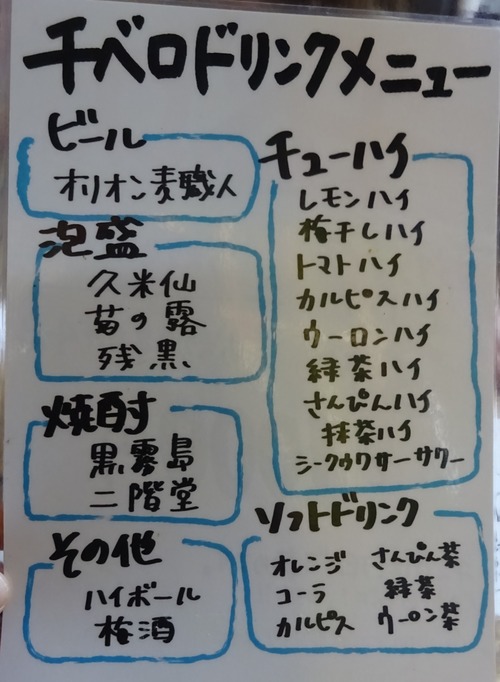 千ベロドリンクメニュー
ビール
オリオン麦職人
泡盛
久米仙
菊の露
残黒
焼酎
黒霧島
二階堂
その他
ハイボール
梅酒
チューハイ
レモンハイ
梅干しハイ
トマトハイ
カルピスハイ
ウーロンハイ
緑茶ハイ
さんぴんハイ
抹茶ハイ
シークヮサーサワー
ソフトドリンク
オレンジ さんぴん茶
コーラ 緑茶
カルピス ウーロン茶